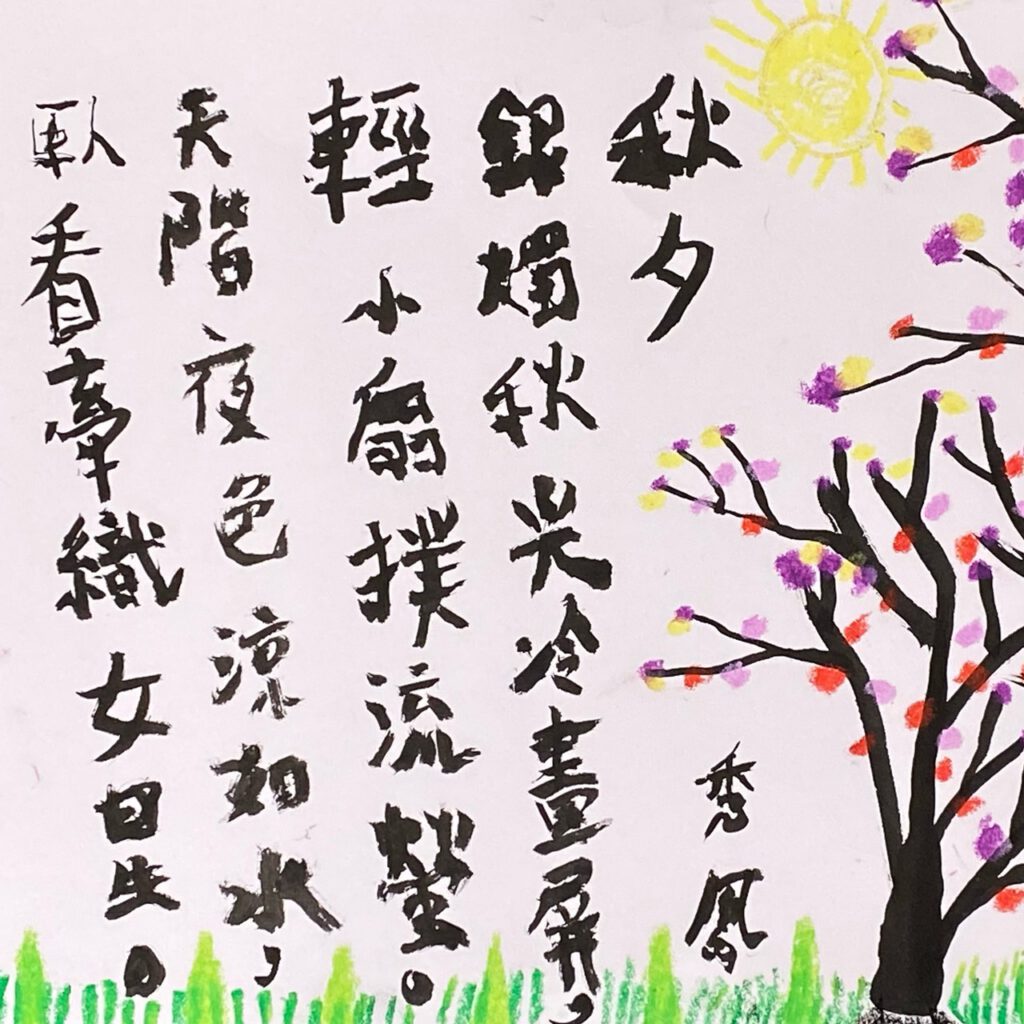 秋夕
秀鳳
銀燭秋光冷畫屏，
輕小扇撲流螢。
天階夜色涼如水，
臥看牽織女星。